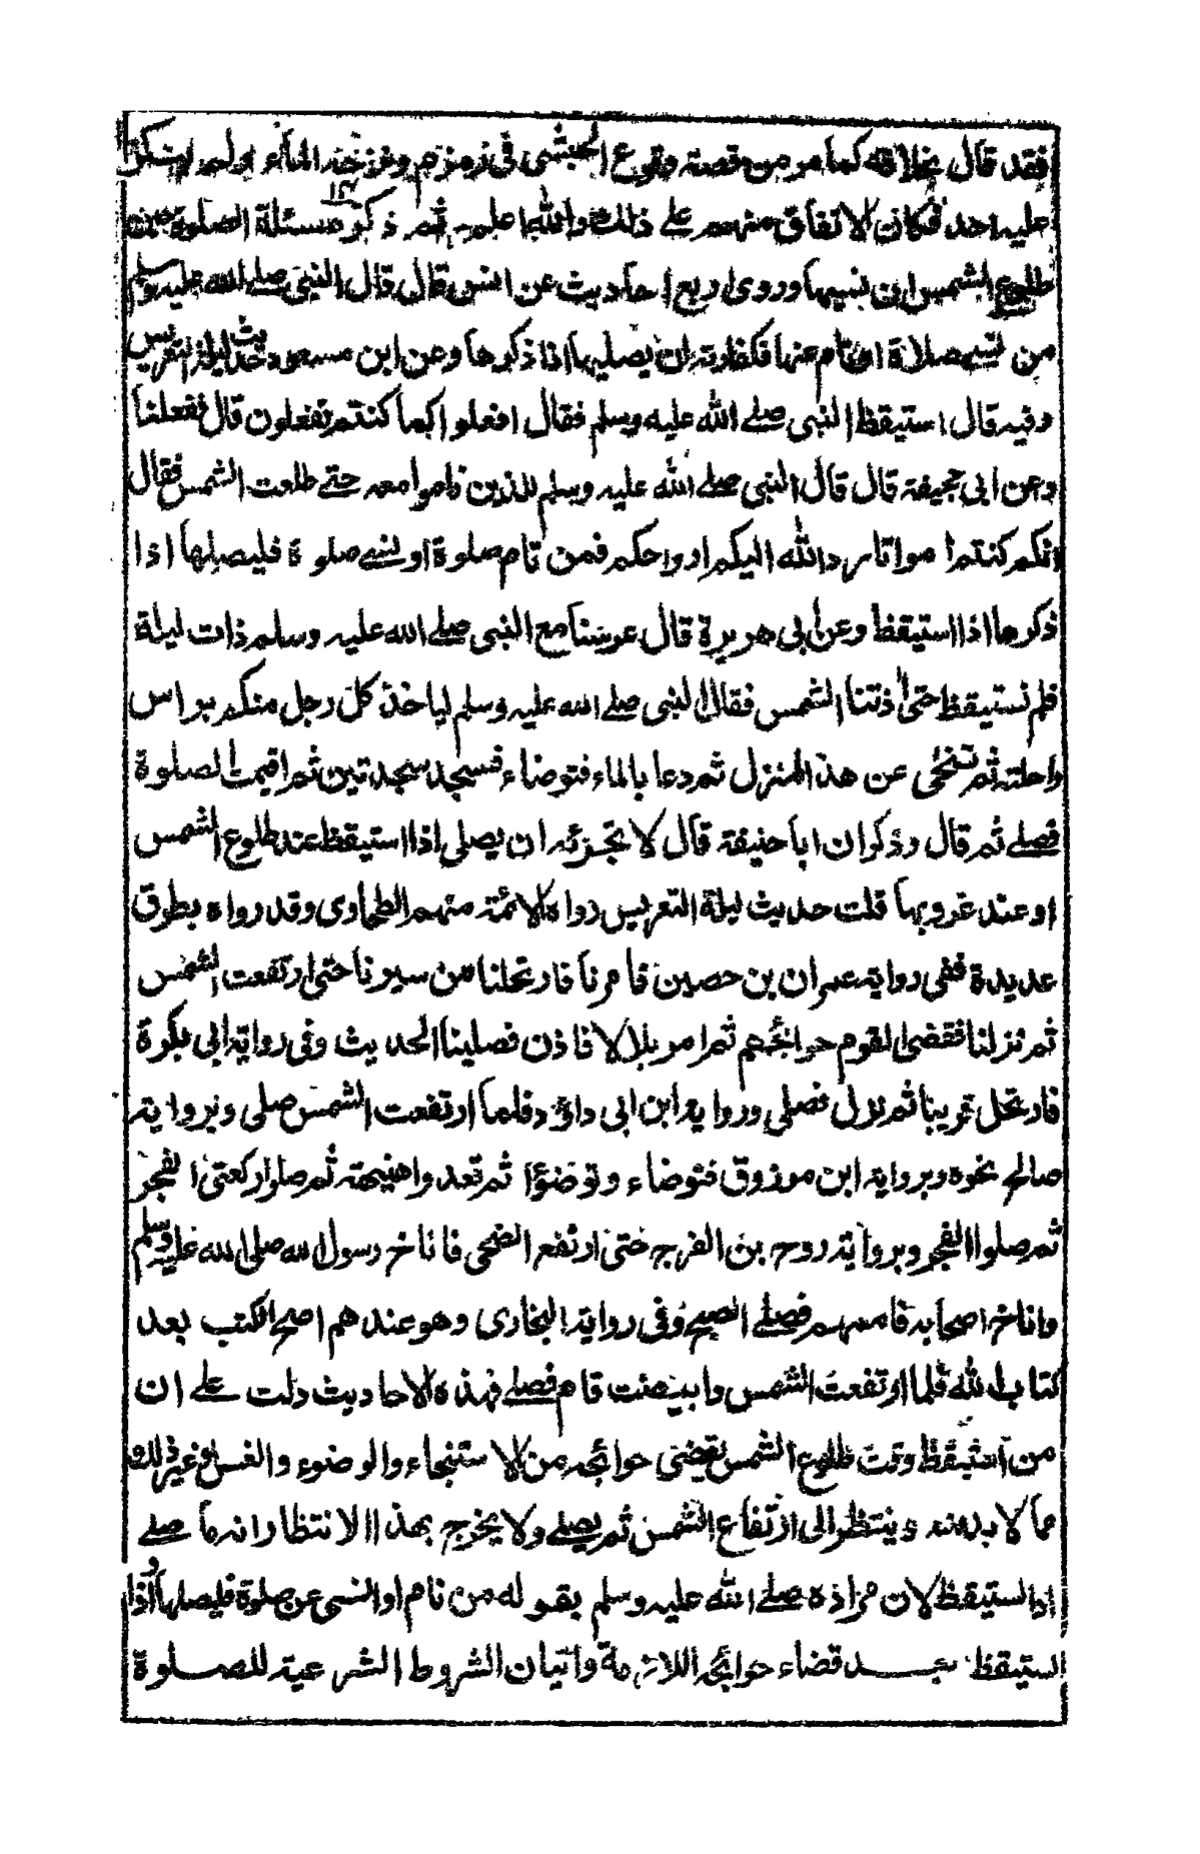 فقد قال بخلافه كما مر من قصة وقوع الحبشي في زمزم ونزح الماء ولم ينكر
عليه احد فكان الاتفاق منهم على ذلك والله اعلم ثم ذكر مسئلة الصلوة عند
طلوع الشمس اربع احاديث عن انس قال قال النبي صلے الله عليه وسلم
من نسے صلاة او نام عنها فكفارته ان يصليها اذا ذكرها وعن ابن مسعود حديث ليلة التعريس
وفيه قال استيقظ النبي صلے الله عليه وسلم فقال افعلوا كما كنتم تفعلون قال ففعلنا
وعن ابي جحيفة قال قال النبي صلے الله عليه وسلم للذين ناموا معه حتے طلعت الشمس فقال
انكم كنتم امواتا رد الله اليكم ارواحكم فمن نام صلوة او نسے صلوة فليصلها اذا
ذكرها اذا استيقظ وعن ابي هريرة قال عرسنا مع النبي صلے الله عليه وسلم ذات ليلة
فلم نستيقظ حتى اذتنا الشمس فقال النبي صلے الله عليه وسلم لياخذ كل رجل منكم براس
راحلته ثم تنحى عن هذا المنزل ثم دعا بالماء فتوضاء فسجد سجدتين ثم اقيمت الصلوة
فصلے ثم قال وذكر ان ابا حنيفة قال لا تجزئه ان يصلى اذا استيقظ عند طلوع الشمس
او عند غروبها قلت حديث ليلة التعريس رواه الائمة منهم الطحاوى وقد رواه بطرق
عديدة ففى رواية عمران بن حصين فامرنا فارتحلنا من سيرنا حتى ارتفعت الشمس
ثم نزلنا فقضى القوم حوائجهم ثم امر بلالا فاذن فصلينا الحديث وفى رواية ابى بكرة
فارتحل قريبا ثم نزل فصلى وروايه ابن ابى داؤد فلما ارتفعت الشمس صلى وبرواية
صالح نحوه وبرواية ابن مرزوق فتوضاء وتوضؤا ثم قعدوا هنيهة ثم صلوا ركعتى الفجر
ثم صلوا الفجر وبرواية روح بن الفرج حتى ارتفع الضحى فاناخ رسول الله صلى الله عليه وسلم
واناخ اصحابه فامهم فصلے الصبح وفى رواية البخارى وهو عندهم اصح الكتب بعد
كتاب الله فلما ارتفعت الشمس وابيضت قام فصلے فهذه الاحاديث دلت علے ان
من استيقظ وقت طلوع الشمس يقضى حوائجه من الاستنجاء والوضوء والغسل وغير ذلك
مما لا بد منه وينتظر الى ارتفاع الشمس ثم يصلے ولا يخرج بهذا الانتظار انه ما صلے
اذا استيقظ لان مراده صلے الله عليه وسلم بقوله من نام او نسى عن صلوة فليصلها اذا
استيقظ بعد قضاء حوائجه اللازمة واتيان الشروط الشرعية للصلوة